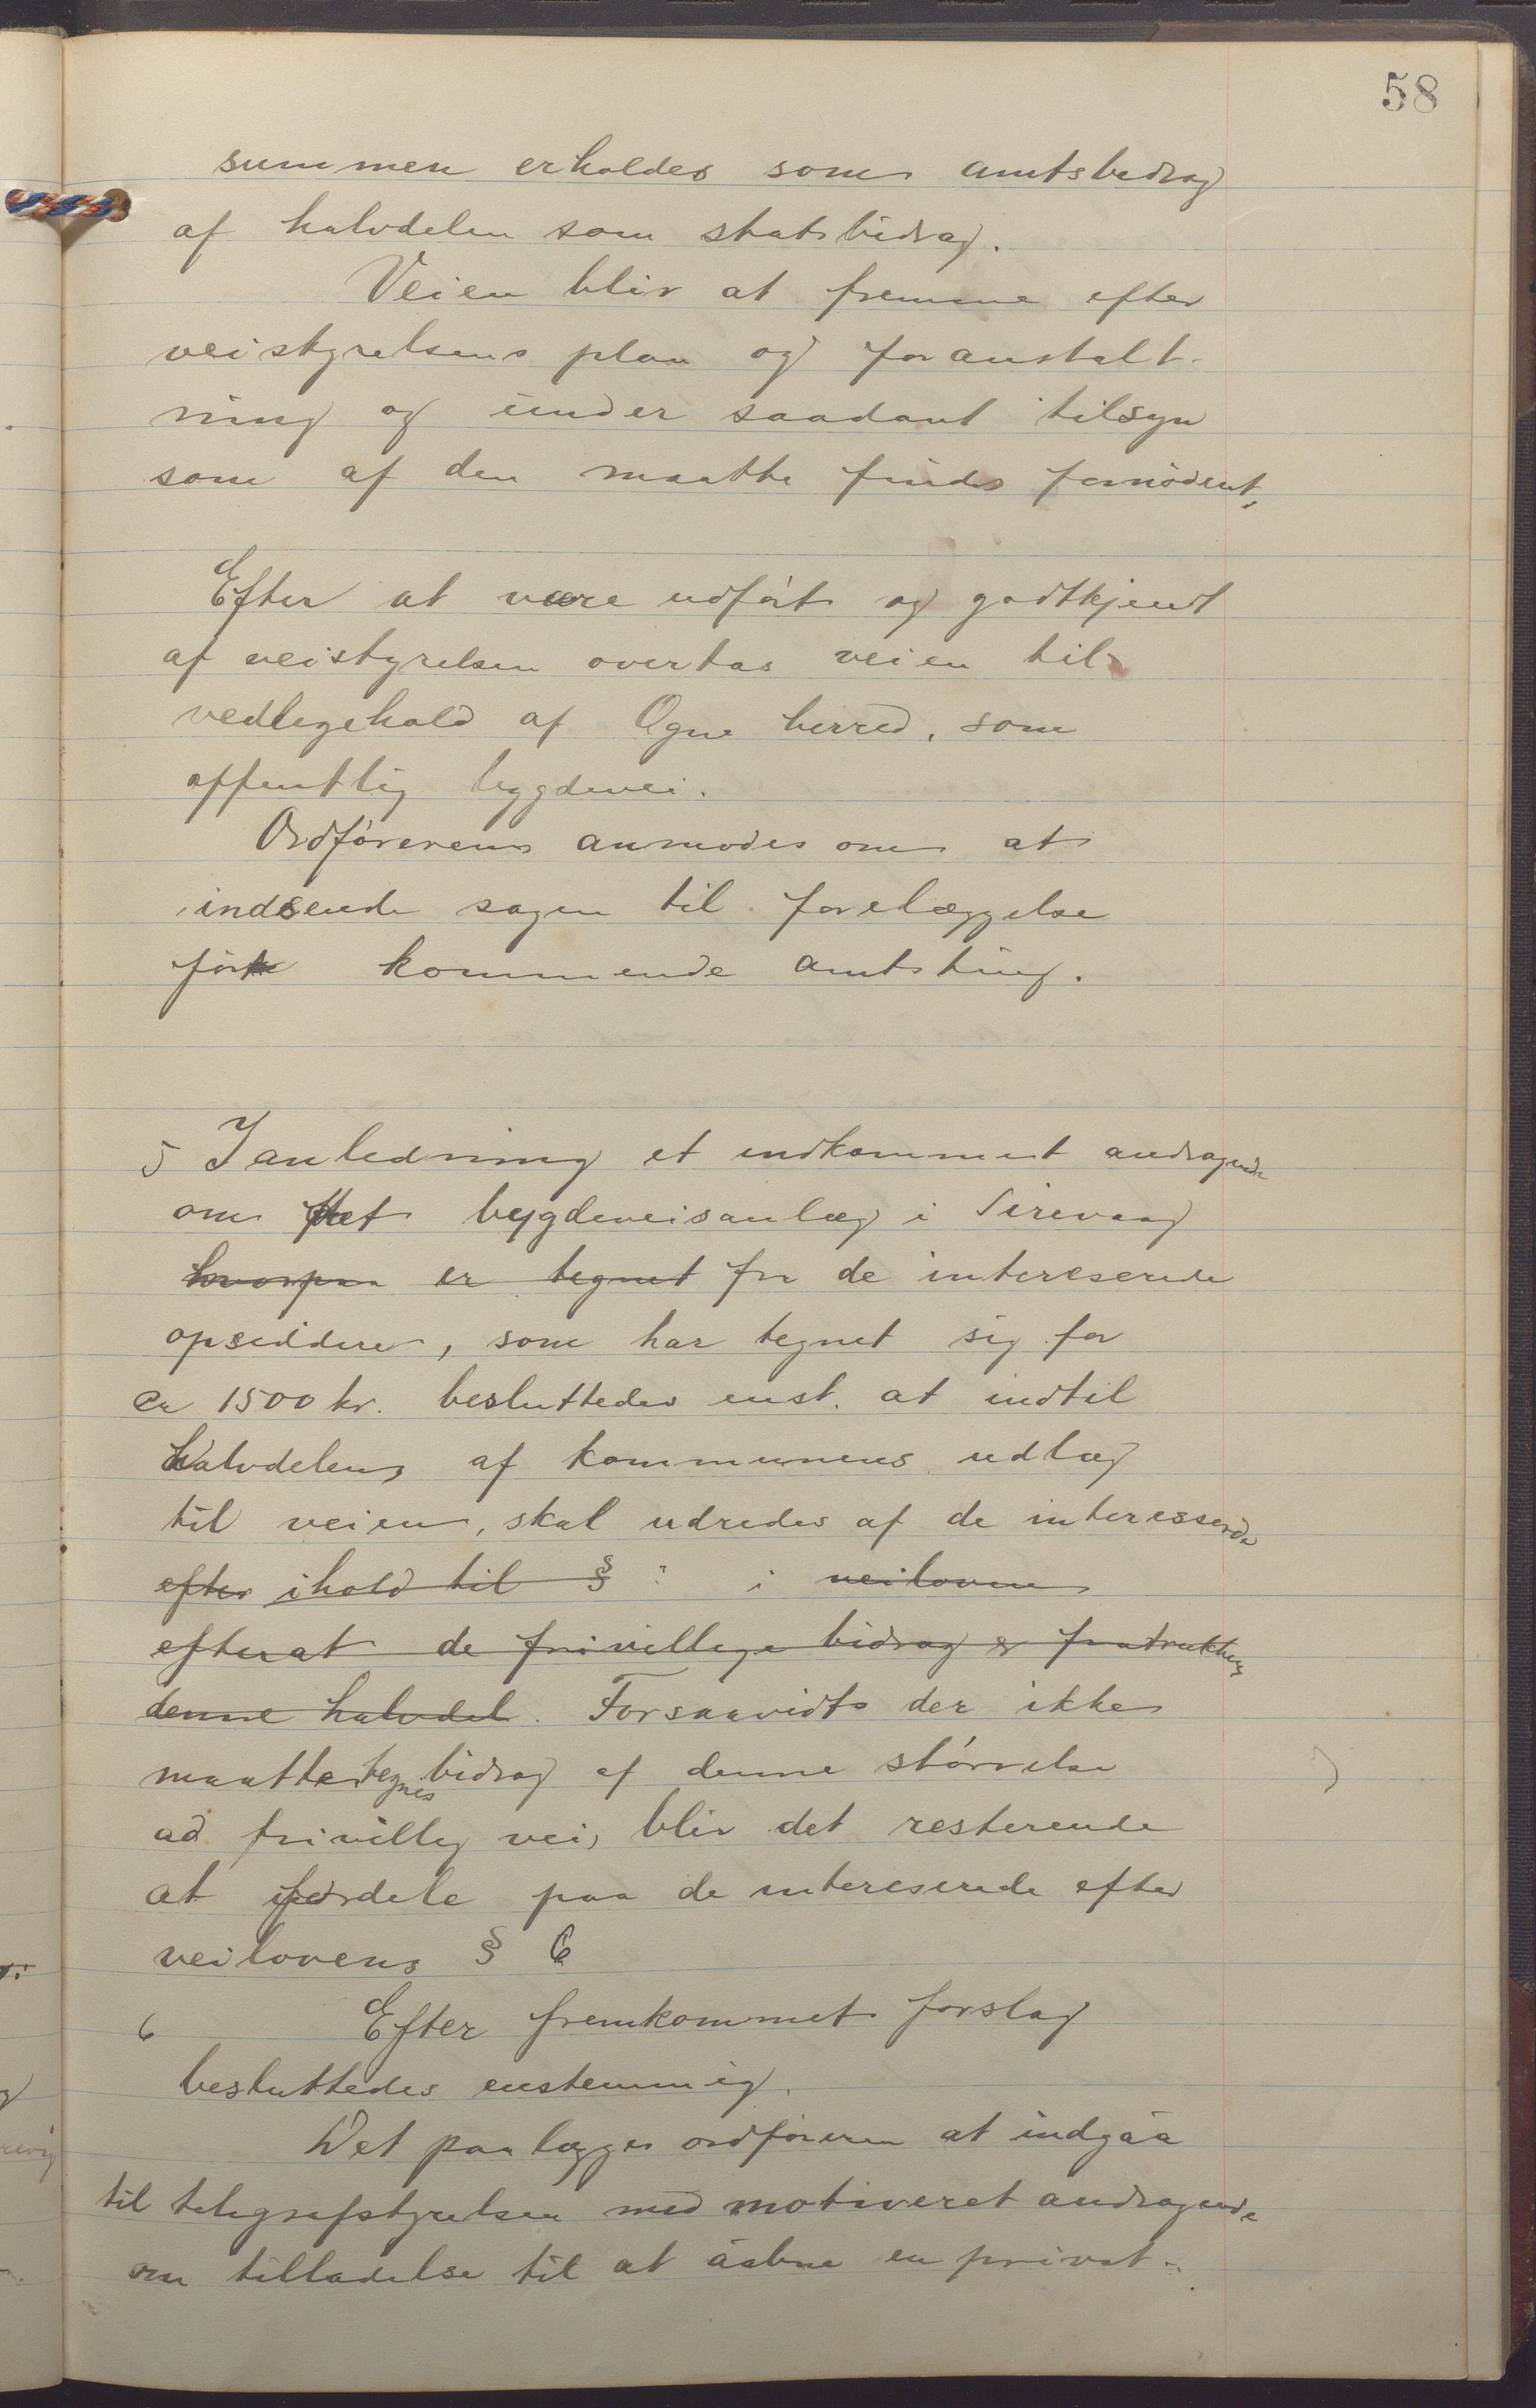 58
summen erholdes som amtsbedrag
af halvdelen som statsbidrag.
Veien blir at fremme efter
veistyrelsens plan og foranstalt-
ning og under saadant tilsyn
som af den maatte findes fornødent,
Efter at være udført og godtkjendt
af veistyrelsen overtas veien til
vedligehold af Ogne herred, som
offentlig bygdevei.
Ordføreren anmodes om at
indsende sagen til forelæggelse
for kommende amtsting.
5 I anledning et indkommet andragende
om et bygdeveisanlæg i Sirevaag
hvorpaa er tegnet fra de intereserede
opsiddere, som har tegnet sig for
ca 1500 kr. besluttedes enst. at indtil
Halvdelen af kommunens udlæg
til veien, skal udredes af de interesserede
efter ihold til § i veiloven
efterat de frivillige bidrag er fratrukket
denne halvdel. Forsaavidt der ikke
maatte tegnes bidrag af denne størrelse
ad frivillig vei, blir det resterende
at fordele paa de intereserede efter
veilovens § 6
6 Efter fremkommet forslag
besluttedes enstemmig.
Det paalægges ordføreren at indgaa
til telegrafstyrelsen med motiveret andragende
om tilladelse til at aabne en privat-